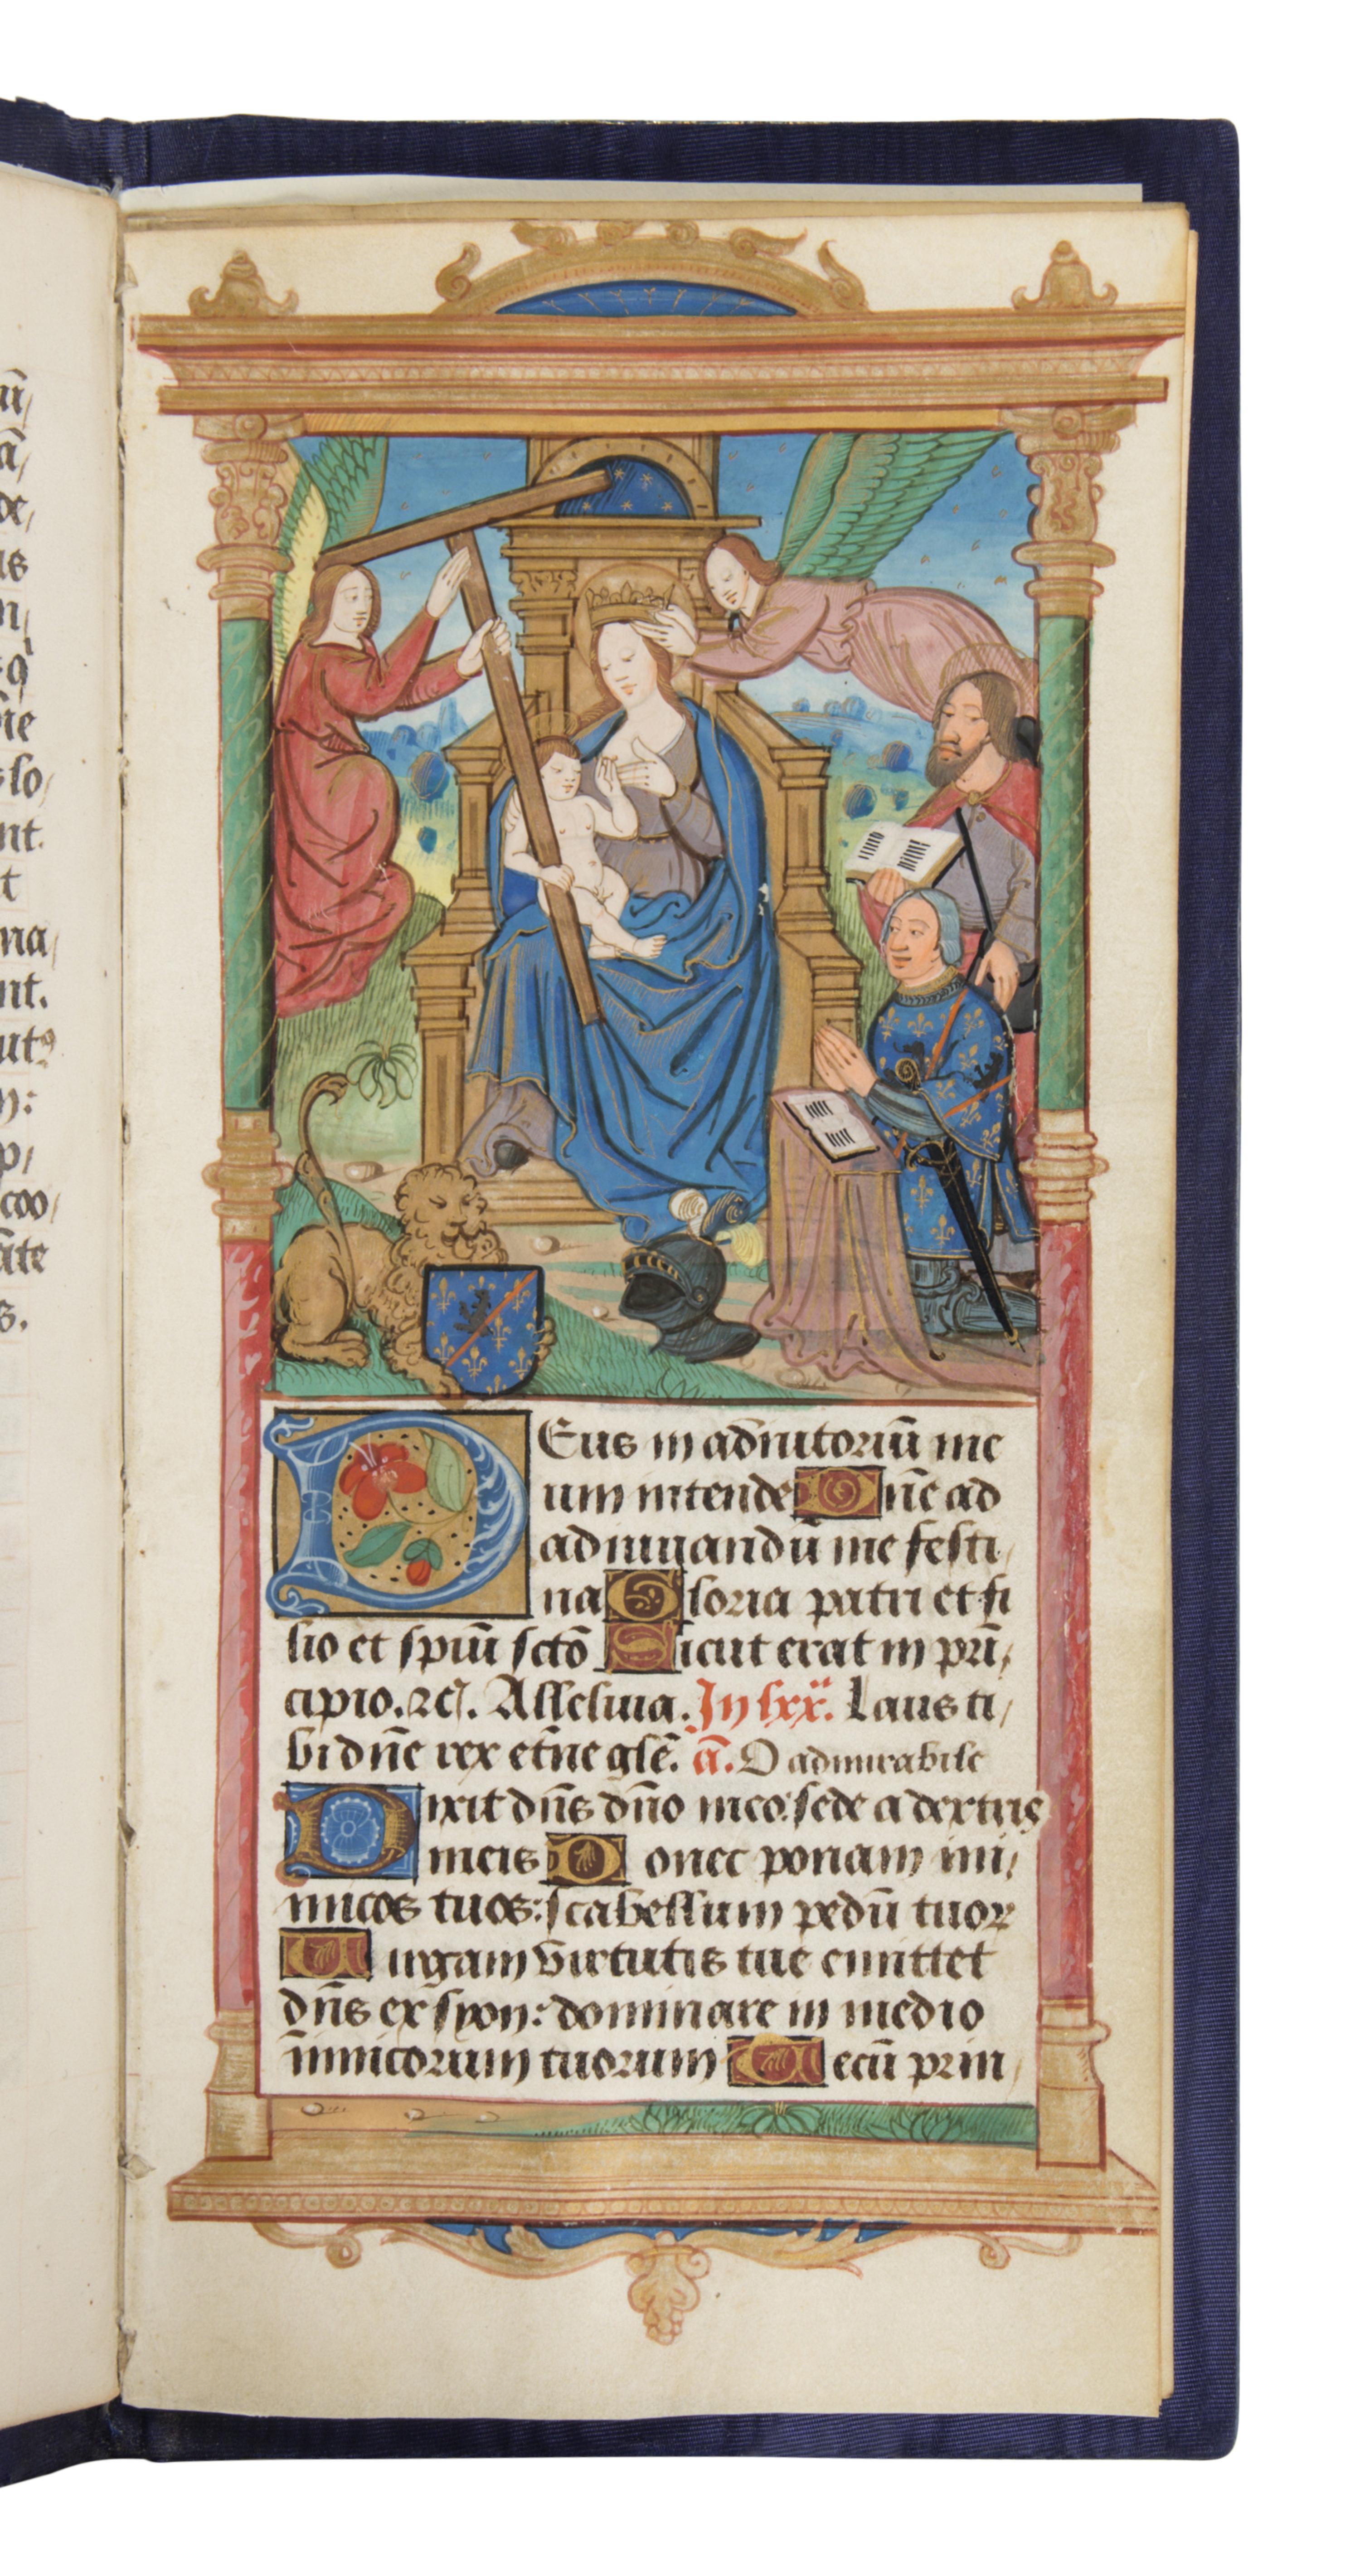 ūi
ā
de
us
m
rie
lo
nt.
t
na
nt.
utꝰ
n:
p
coo
āte
s.
Deus in adiutoriū me
um intende Dn̄e ad
adiuuandū me festi
na Gloria patri et fi
lio et spiūi sctō Sicut erat in prī
cipio. ⁊c̄. Alleluia. In lxx.ͣ Laus ti
bi dn̄e rex etn̄e glē. ā. O admirabile
Dixit dn̄s dn̄o meo: sede a dextris
meis Donec ponam ini
micos tuos: scabellum pedū tuoꝝ
Uirgam virtutis tue emittet
dn̄s ex syon: dominare in medio
inimicorum tuorum Tecū prin